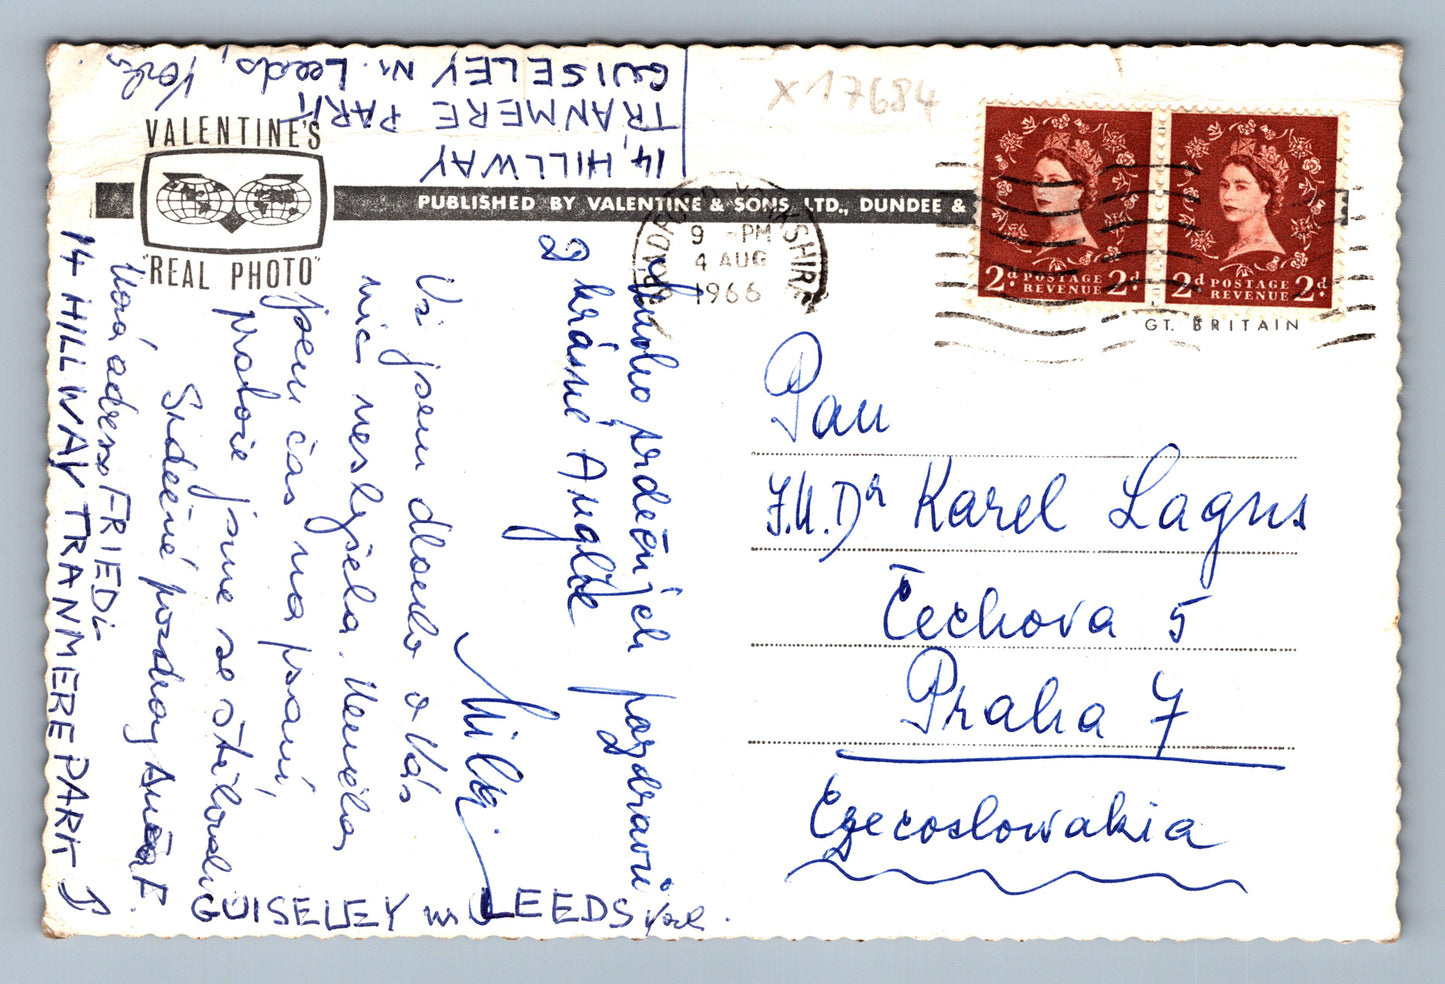 14, HILLWAY
TRANMERE PARK
GUISELEY Nr. Leeds, Yorks
X 17684
VALENTINE'S
"REAL PHOTO"
PUBLISHED BY VALENTINE & SONS, LTD., DUNDEE &
BRADFORD YORKSHIRE
9 - PM
4 AUG
1966
2d POSTAGE REVENUE 2d.
2d POSTAGE REVENUE 2d.
GT. BRITAIN
Mnoho srdečných pozdravů
z krásné Anglie
Milka
Už jsem dlouho o Vás
nic neslyšela. Neměla
jsem čas na psaní,
protože jsme se stěhovali.
Srdečné pozdravy
Nová adresa FRIEDL
14 HILLWAY TRANMERE PARK
GUISELEY nr LEEDS York.
Pan
J.U.Dr Karel Lagus
Čechova 5
Praha 7
Czecoslowakia